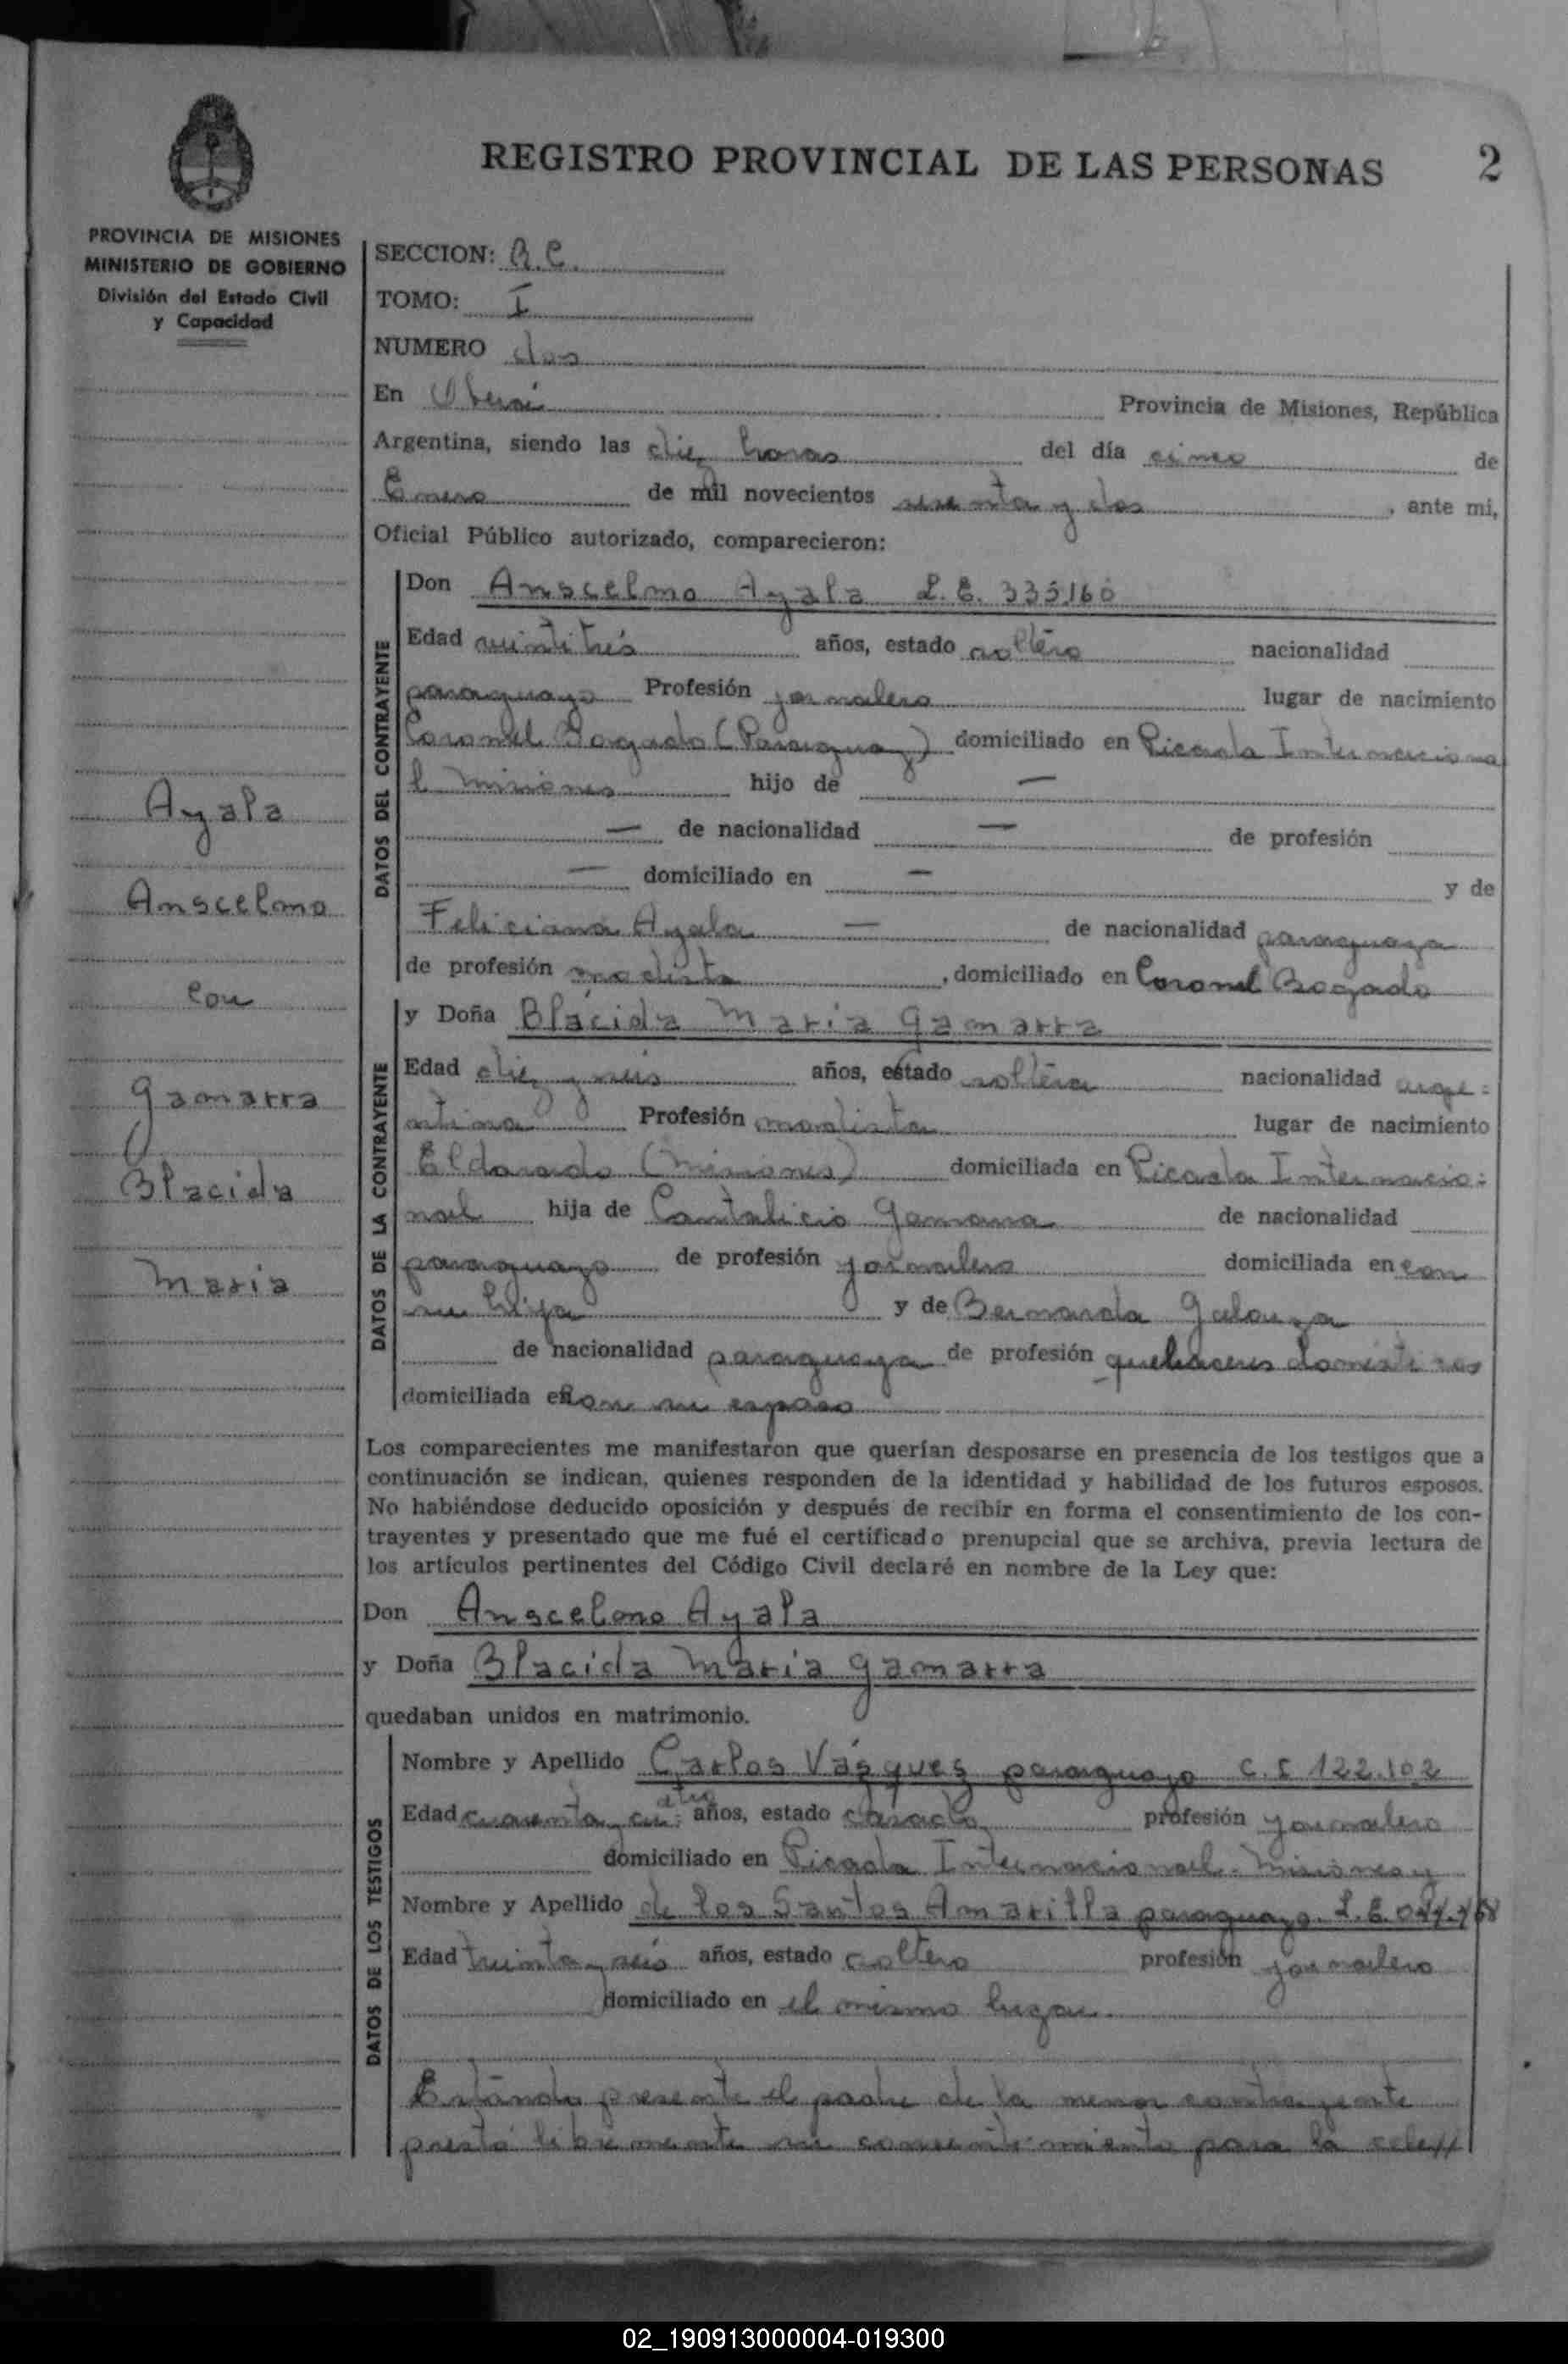 REGISTRO PROVINCIAL DE LAS PERSONAS 2
PROVINCIA DE MISIONES
MINISTERIO DE GOBIERNO
División del Estado Civil
y Capacidad
Ayala
Anscelmo
con
Gamarra
Blacida
Maria
SECCION: R.C.
TOMO: I
NUMERO dos
En Oberá Provincia de Misiones, República
Argentina, siendo las diez horas del día cinco de
Enero de mil novecientos sesenta y dos, ante mi,
Oficial Público autorizado, comparecieron:
DATOS DEL CONTRAYENTE
Don Anscelmo Ayala L.E. 335.160
Edad veintitrés años, estado soltero nacionalidad
paraguayo Profesión jornalero lugar de nacimiento
Coronel Bogado (Paraguay) domiciliado en Picada Internaciona
l Misiones hijo de —
— de nacionalidad — de profesión
— domiciliado en — y de
Feliciana Ayala — de nacionalidad paraguaya
de profesión modista, domiciliado en Coronel Bogado
DATOS DE LA CONTRAYENTE
y Doña Blácida Maria Gamarra
Edad diez y seis años, estado soltera nacionalidad arge-
ntina Profesión modista lugar de nacimiento
Eldorado (Misiones) domiciliada en Picada Internacio-
nal hija de Cantalicio Gamarra de nacionalidad
paraguayo de profesión jornalero domiciliada en con
su hija y de Bernarda Galarza
de nacionalidad paraguaya de profesión quehaceres domésticos
domiciliada en con su esposo
Los comparecientes me manifestaron que querían desposarse en presencia de los testigos que a
continuación se indican, quienes responden de la identidad y habilidad de los futuros esposos.
No habiéndose deducido oposición y después de recibir en forma el consentimiento de los con-
trayentes y presentado que me fué el certificado prenupcial que se archiva, previa lectura de
los artículos pertinentes del Código Civil declaré en nombre de la Ley que:
Don Anscelmo Ayala
y Doña Blacida Maria Gamarra
quedaban unidos en matrimonio.
DATOS DE LOS TESTIGOS
Nombre y Apellido Carlos Vásquez paraguayo C.I 122.102
Edad cuarenta y cuatro años, estado casado profesión jornalero
domiciliado en Picada Internacional - Misiones y
Nombre y Apellido de los Santos Amarilla paraguayo L.E.
Edad treinta y seis años, estado soltero profesión jornalero
domiciliado en el mismo lugar.
Estando presente el padre de la menor contrayente
prestó libremente su consentimiento para la cele//
02_190913000004-019300